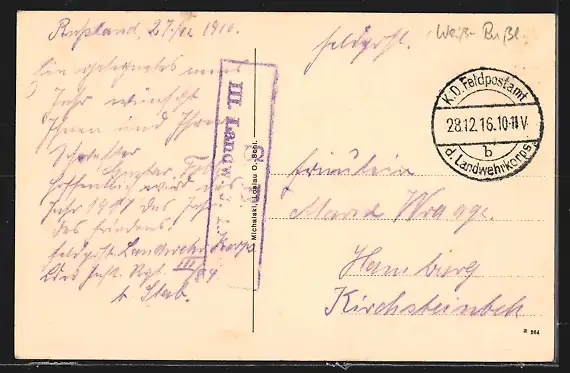 Rußland, 27/12 1916.
Ein gesegnetes neues
Jahr wünscht
Ihnen und Ihrer
Schwester
Hoffentlich wird das
Jahr 1917 das Jahr
des Friedens!
Feldpost Landwehr Korps
Ldw. Inft. Rgt. III/84
Stab.
III. Landw.
Michalski, Loslau O.-Schl.
Feldpost.
Weiß-Rußl.
K.D. Feldpostamt
28.12.16.10-11V
b
d. Landwehrkorps
Fräulein
Maria Wraage.
Hamburg
Kirchsteinbek
R 964